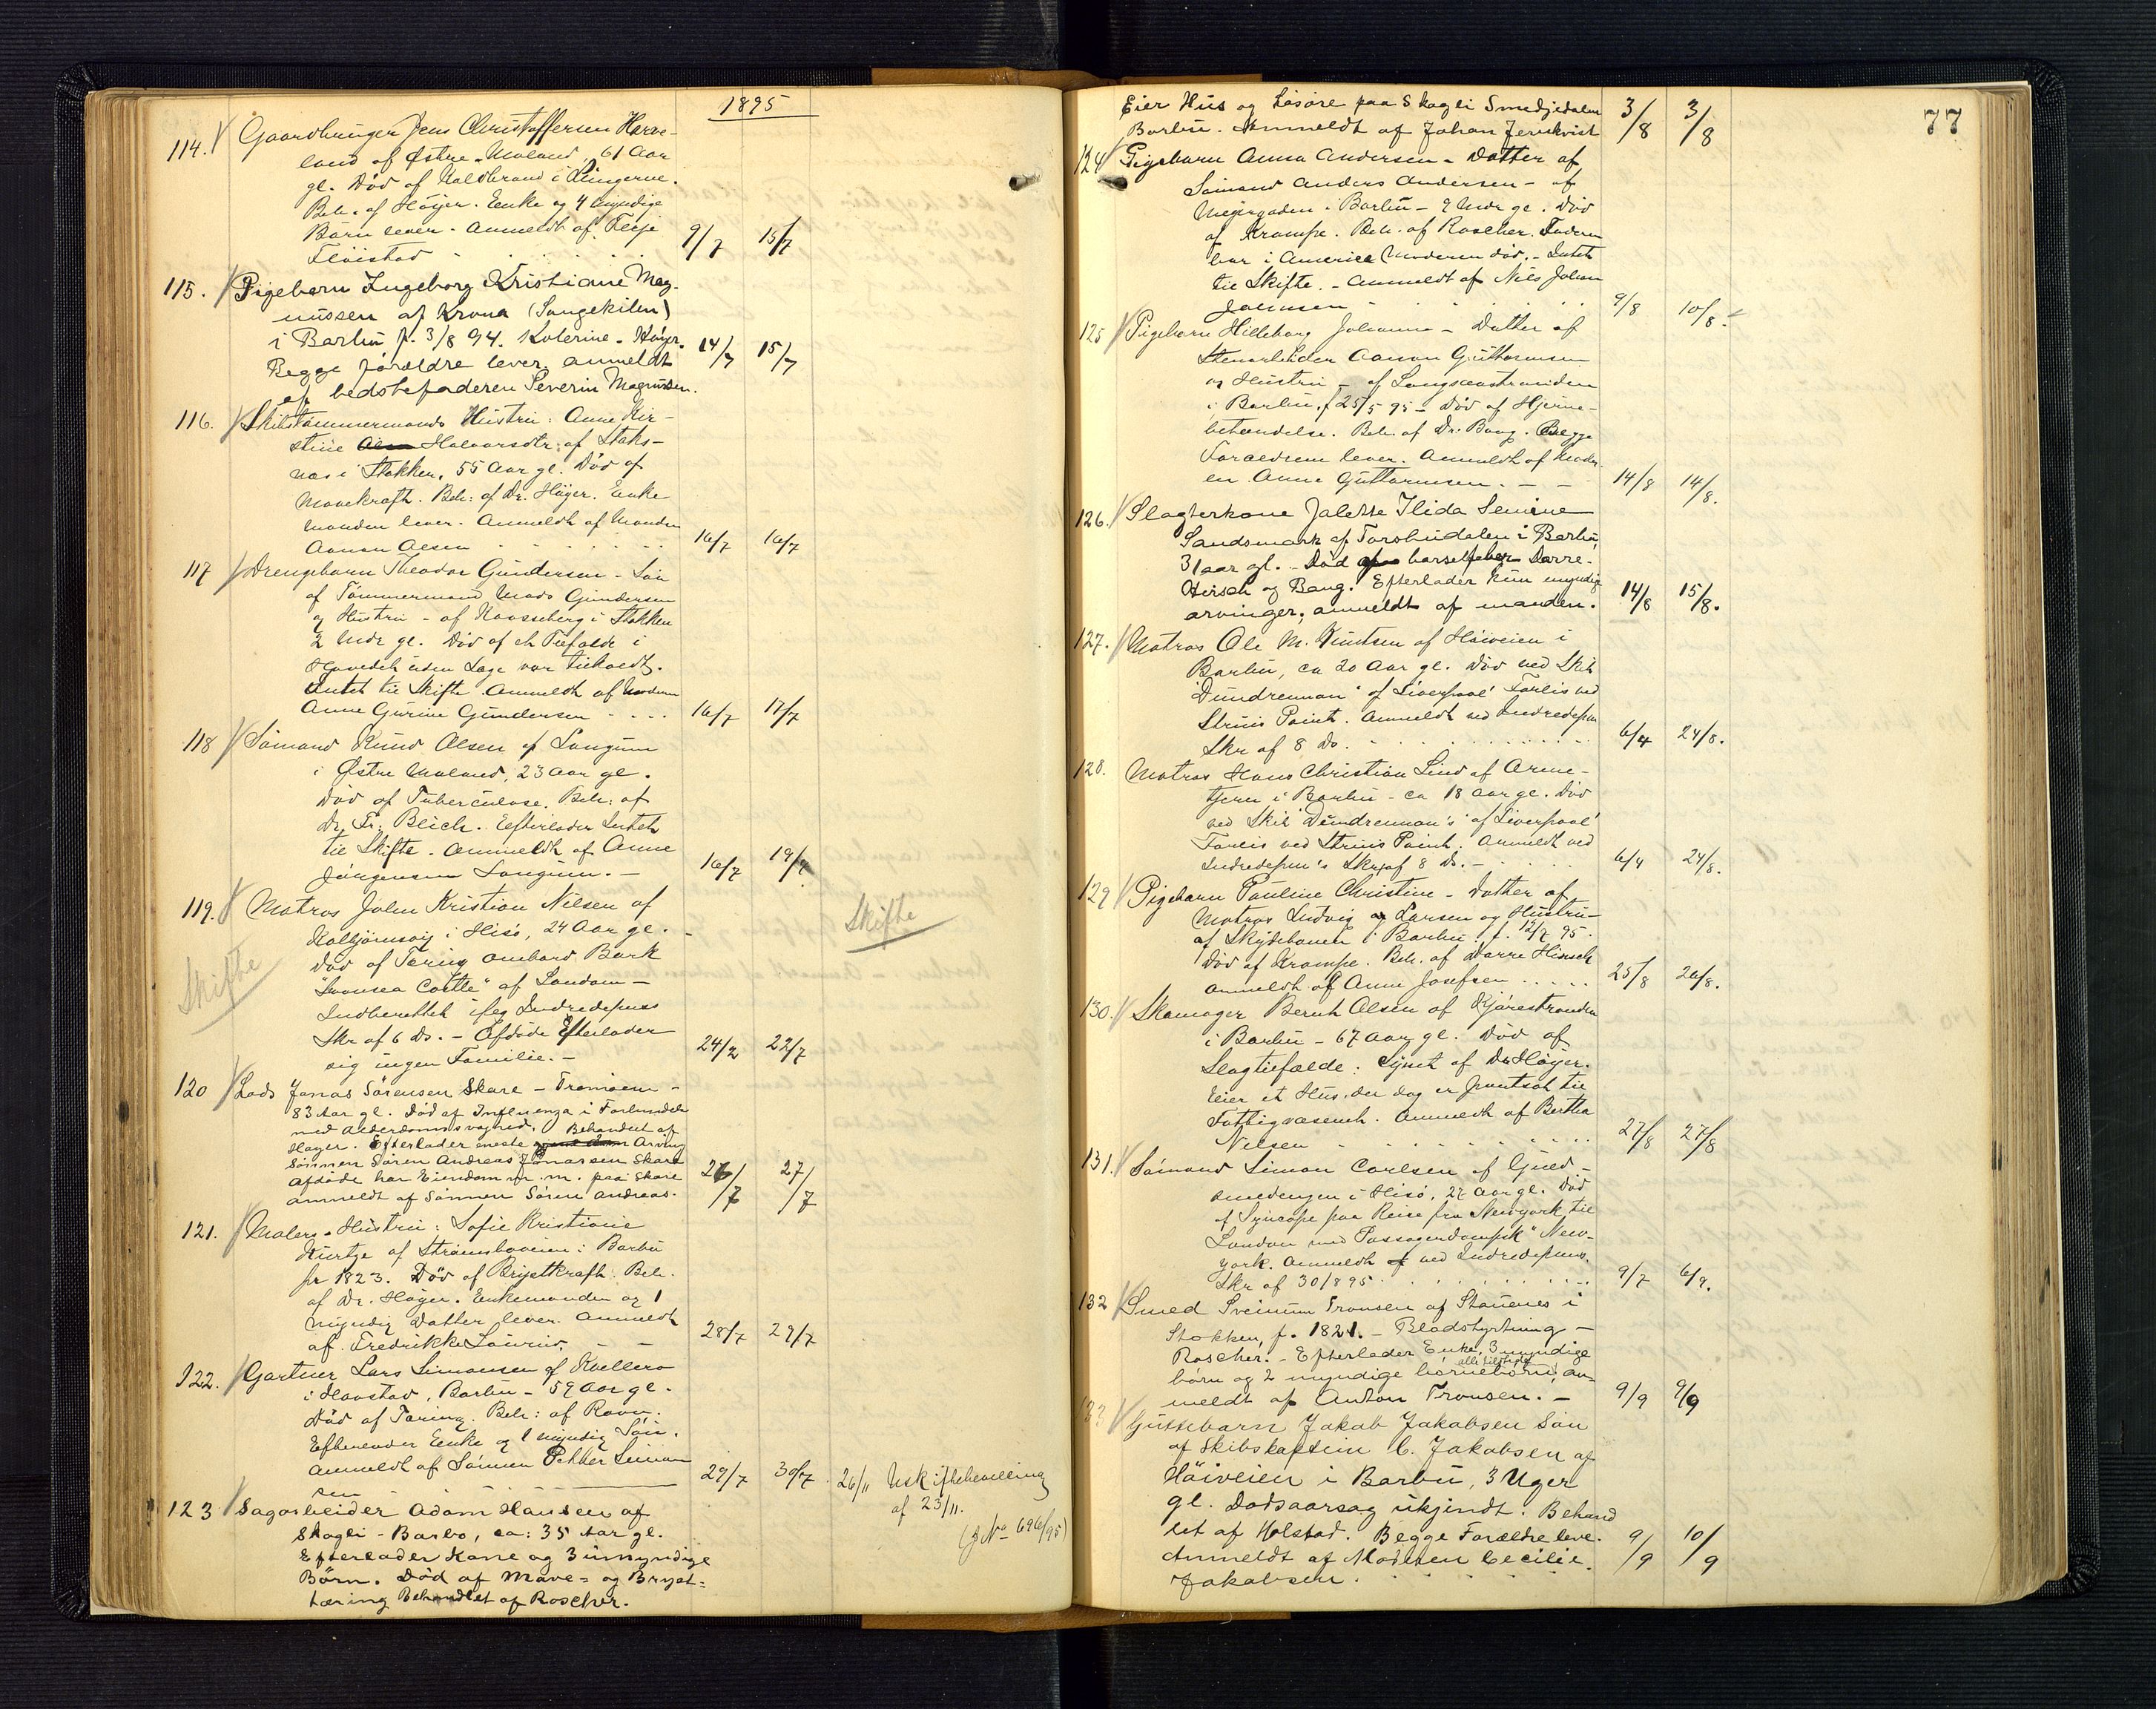 1895
114. Gaardbruger Jens Christoffersen Herre-
land af Østre Moland, 61 Aar
gl. Død af Koldbrand i
Beh. af Høyer. Enke og 4 myndige
Børn lever. Anmeldt af Terje
Fløistad 9/7 15/7
115. Pigebarn Ingeborg Kristiane Mag-
nussen af Krona (Songekilen)
i Barbu f. 3/8 94. Kolerine. Høyer.
Begge forældre lever anmeldt 14/7 15/7
af bedstefaderen Severin Magnussen.
116. Skibstømmermands Hustru: Anne Kir-
stine Halvorsdtr: af Staks-
næs i Stokken, 55 Aar gl. Død af
Mavekræft. Beh: af Dr. Høyer. Enke
manden lever. Anmeldt af Manden
Aanon Olsen 16/7 16/7
117 Drengebarn Theodor Gundersen - Søn
af Tømmermand Mads Gundersen
og Hustru - af i Stokken
2 Mdr gl. Død af et Tilfælde i
Hovedet uden Læge var tilkaldt.
Intet til Skifte. Anmeldt af Moderen
Anne Gurine Gundersen 16/7 17/7
118 Sømand Knud Olsen af Longum
i Østre Moland, 23 Aar gl.
Død af Tuberculose. Beh: af
Dr. Fr: Blich. Efterlader Intet
til Skifte. Anmeldt af Anne
Jørgensen Longum. - 16/7 19/7
119. Matros John Kristian Nilsen af
Kolbjørnsvig i Hisø, 24 Aar gl. -
Død af Tæring ombord Bark
"Swansea Castle" af London -
Indberettet iflg Indredepms
Skr af 6 Ds. - Afdøde Efterlader
sig ingen Familie. - 24/2 22/7
Skifte
Skifte
120 Lods Jonas Sørensen Skare - Tromøen -
83 Aar gl. Død af Influenza i Forbindelse
med Alderdomssvaghed. Behandlet af
Høyer. Efterlader eneste Arving
Sønnen Søren Andreas Jonassen Skare
Afdøde har Eiendom m. m. paa Skare
anmeldt af Sønnen Søren Andreas. 26/7 27/7
121. Malers Hustru: Sofie Kristiane
Kurtze af Strømsboveien i Barbu
fr 1823. Død af Brystkræft. Beh.
af Dr. Høyer. Enkemanden og 1
myndig Datter lever. Anmeldt
af Fredrikke Laurin. 28/7 29/7
122. Gartner Lars Simonsen af Kvellero
i Havstad, Barbu - 59 Aar gl.
Død af Tæring. Beh: af Ravn.
Efterlader Enke og 1 myndig Søn.
Anmeldt af Sønnen Petter Simon
sen 29/7 30/7 26/11 Uskiftebevilling
af 23/11.
(J No 696/95)
123 Sagarbeider Adam Hansen af
Skogli - Barbo, ca: 35 Aar gl.
Efterlader Kone og 3 umyndige
Børn. Død af Mave= og Bryst=
tæring Behandlet af Roscher.
77
Eier Hus og Løsøre paa Skogli Smedjedalen 3/8 3/8
Barbu. Anmeldt af Johan Jernkvist
124 Pigebarn Anna Andersen - Datter af
Sømand Anders Andersen - af
Meiergaden i Barbu - 9 Mdr gl. Død
af Krampe. Beh. af Roscher. Faderen
bor i America Moderen død. - Intet
til Skifte. - Anmeldt af Nils Johan
Johnsen 9/8 10/8.
125 Pigebarn Hilleborg Johanne - Datter af
Stenarbeider Aanon Guttormsen
og Hustru - af Langsævstranden
i Barbu, f 25/5 95 - Død af Hjerne-
betændelse. Beh. af Dr. Bang. Begge
Forældrene lever. Anmeldt af Moder-
en Anne Guttormsen. - - 14/8 14/8.
126. Slagterkone Jalette Ilida Semine
Sandsmark af Torsbudalen i Barbu,
31 aar gl. - Død af barselfeber Darre-
Hirsch og Bang. Efterlader kun umyndige
arvinger; anmeldt af manden. 14/8 15/8.
127. Matros Ole M. Knutsen af Høiveien i
Barbu, ca 20 Aar gl. Død ved Skib
"Dundrennan" af Liverpool' Forlis ved
Struis Point. Anmeldt ved Indredepm
Skr af 8 Ds. 6/4 24/8.
128. Matros Hans Christian Lind af Arne-
tjern i Barbu - ca 18 Aar gl. Død
ved Skib "Dundrennan's" af Liverpool'
Forlis ved Struis Point. Anmeldt ved
Indredepm's Skr af 8 Ds. - 6/4 24/8.
129 Pigebarn Pauline Christine - Datter af
Matros Ludvig Larsen og Hustru -
af Skydebanen i Barbu. f. 12/7 95.
Død af Krampe. Beh. af Darre Hirsch
Anmeldt af Anne Josefsen 25/8 26/8.
130. Skomager Bernt Olsen af Kjørestranden
i Barbu - 67 Aar gl. Død af
Slagtilfælde: Synet af Dr Høyer.
Eier et Hus, der dog er pantsat til
Fattigvæsenet. Anmeldt af Bertha
Nilsen 27/8 27/8
131. Sømand Simon Carlsen af Guld-
smedengen i Hisø, 27 Aar gl. Død
af Syncope paa Reise fra Newyork til
London med Passagerdampsk "New-
york. Anmeldt ved Indredepms.
Skr af 30/8 95 9/7 6/9.
132 Smed Sveinum Tronsen af Støuenes i
Stokken, f. 1821. - Blodstyrtning -
Roscher. - Efterlader Enke, 3 myndige
børn og 2 myndige børnebørn, an-
meldt af Anton Tronsen. - 9/9 9/9
133 Guttebarn Jakob Jakobsen Søn
af Skibskaptein C. Jakobsen af
Høiveien i Barbu, 3 Uger
gl. Dødsaarsag ukjendt. Behand
let af Holstad. Begge Forældre leve.
Anmeldt af Moderen Cecilie 9/9 10/9
Jakobsen.